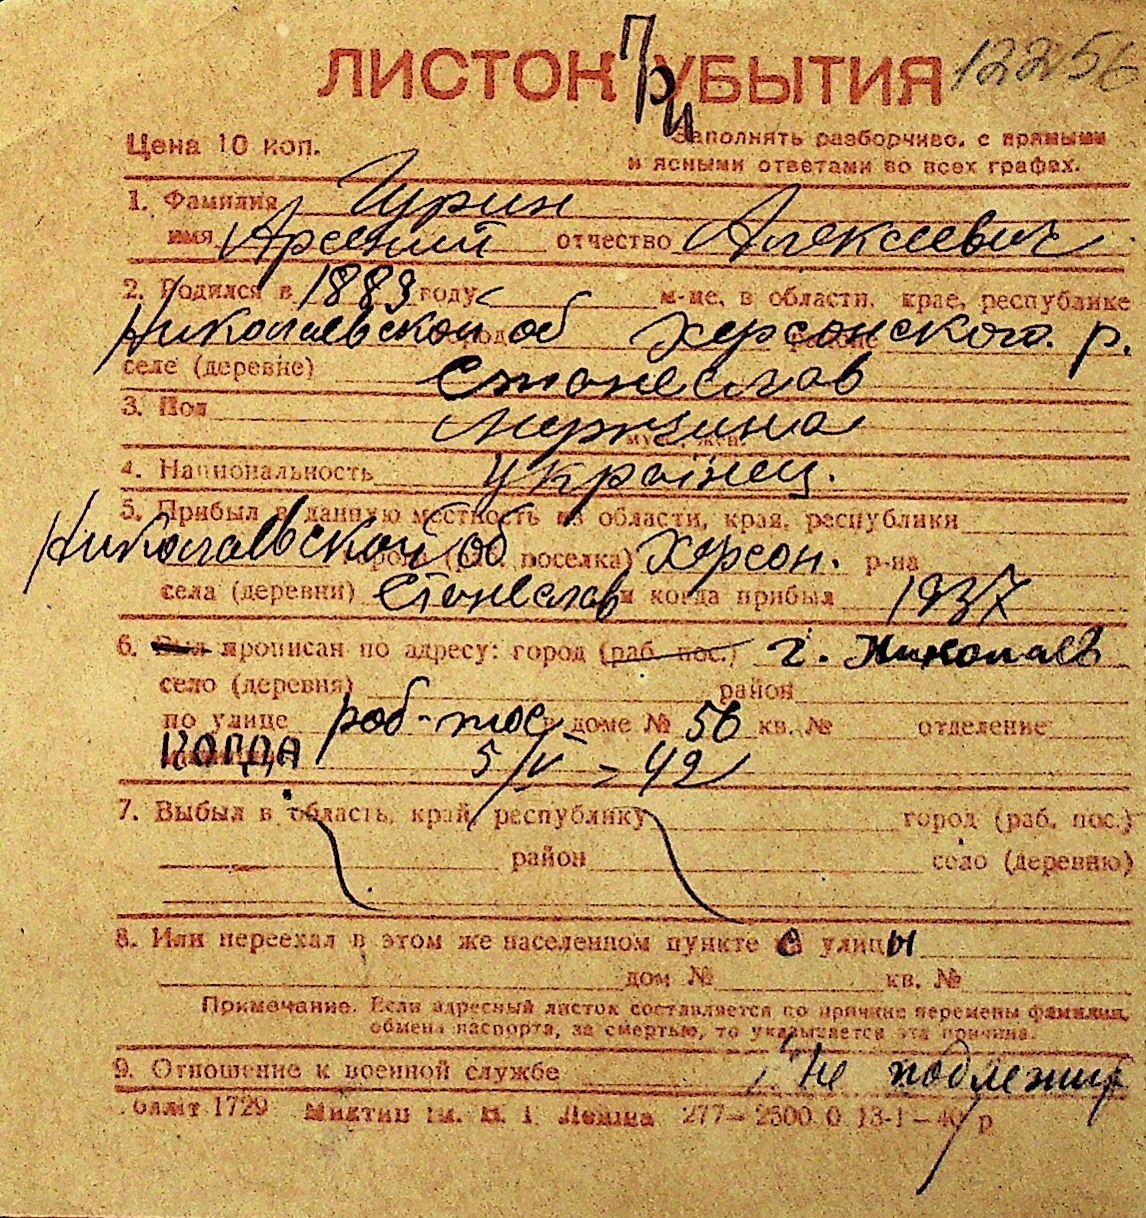 12256
ЛИСТОК ПриУБЫТИЯ
Цена 10 коп.
Заполнять разборчиво, с прямыми
и ясными ответами во всех графах.
1. Фамилия Гурин
имя Арсений отчество Алексеевич
2. Родился в 1883 году м-це, в области, крае, республике
Николаевской об Херсонского р.
селе (деревне) Стонеслав
3. Пол мужчина
муж., жен.
4. Национальность українец.
5. Прибыл в данную местность из области, края, республики
Николаевской об города (раб. поселка) Херсон. р-на
села (деревни) Стонеслав и когда прибыл 1937
6. Был прописан по адресу: город (раб. пос.) г. Николаев
село (деревня) район
по улице роб-пос в доме № 56 кв. № отделение
КОГДА 5/V - 42
7. Выбыл в область, край, республику город (раб. пос.)
район село (деревню)
8. Или переехал в этом же населенном пункте с улицы
дом № кв. №
Примечание. Если адресный листок составляется по причине перемены фамилии,
обмена паспорта, за смертью, то указывается эта причина.
9. Отношение к военной службе не подлежит
1729 Ленина 277—2500 0 13-1—40 р